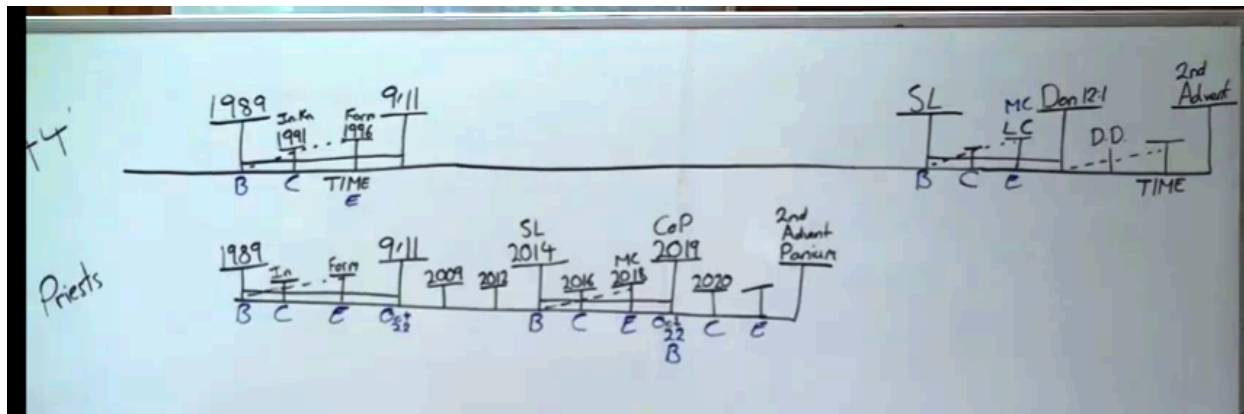 1989
In.Kn
1991
Form
1996
9/11
SL
MC
LC
Dan 12:1
D.D.
2nd
Advent
B C TIME
E
B C E TIME
Priests
1989
In
Form
9/11
2009
2012
SL
2014
2016
MC
2018
CoP
2019
2020
2nd
Advent
Panium
B C E Oct
22
B C E Oct
22
B
C E